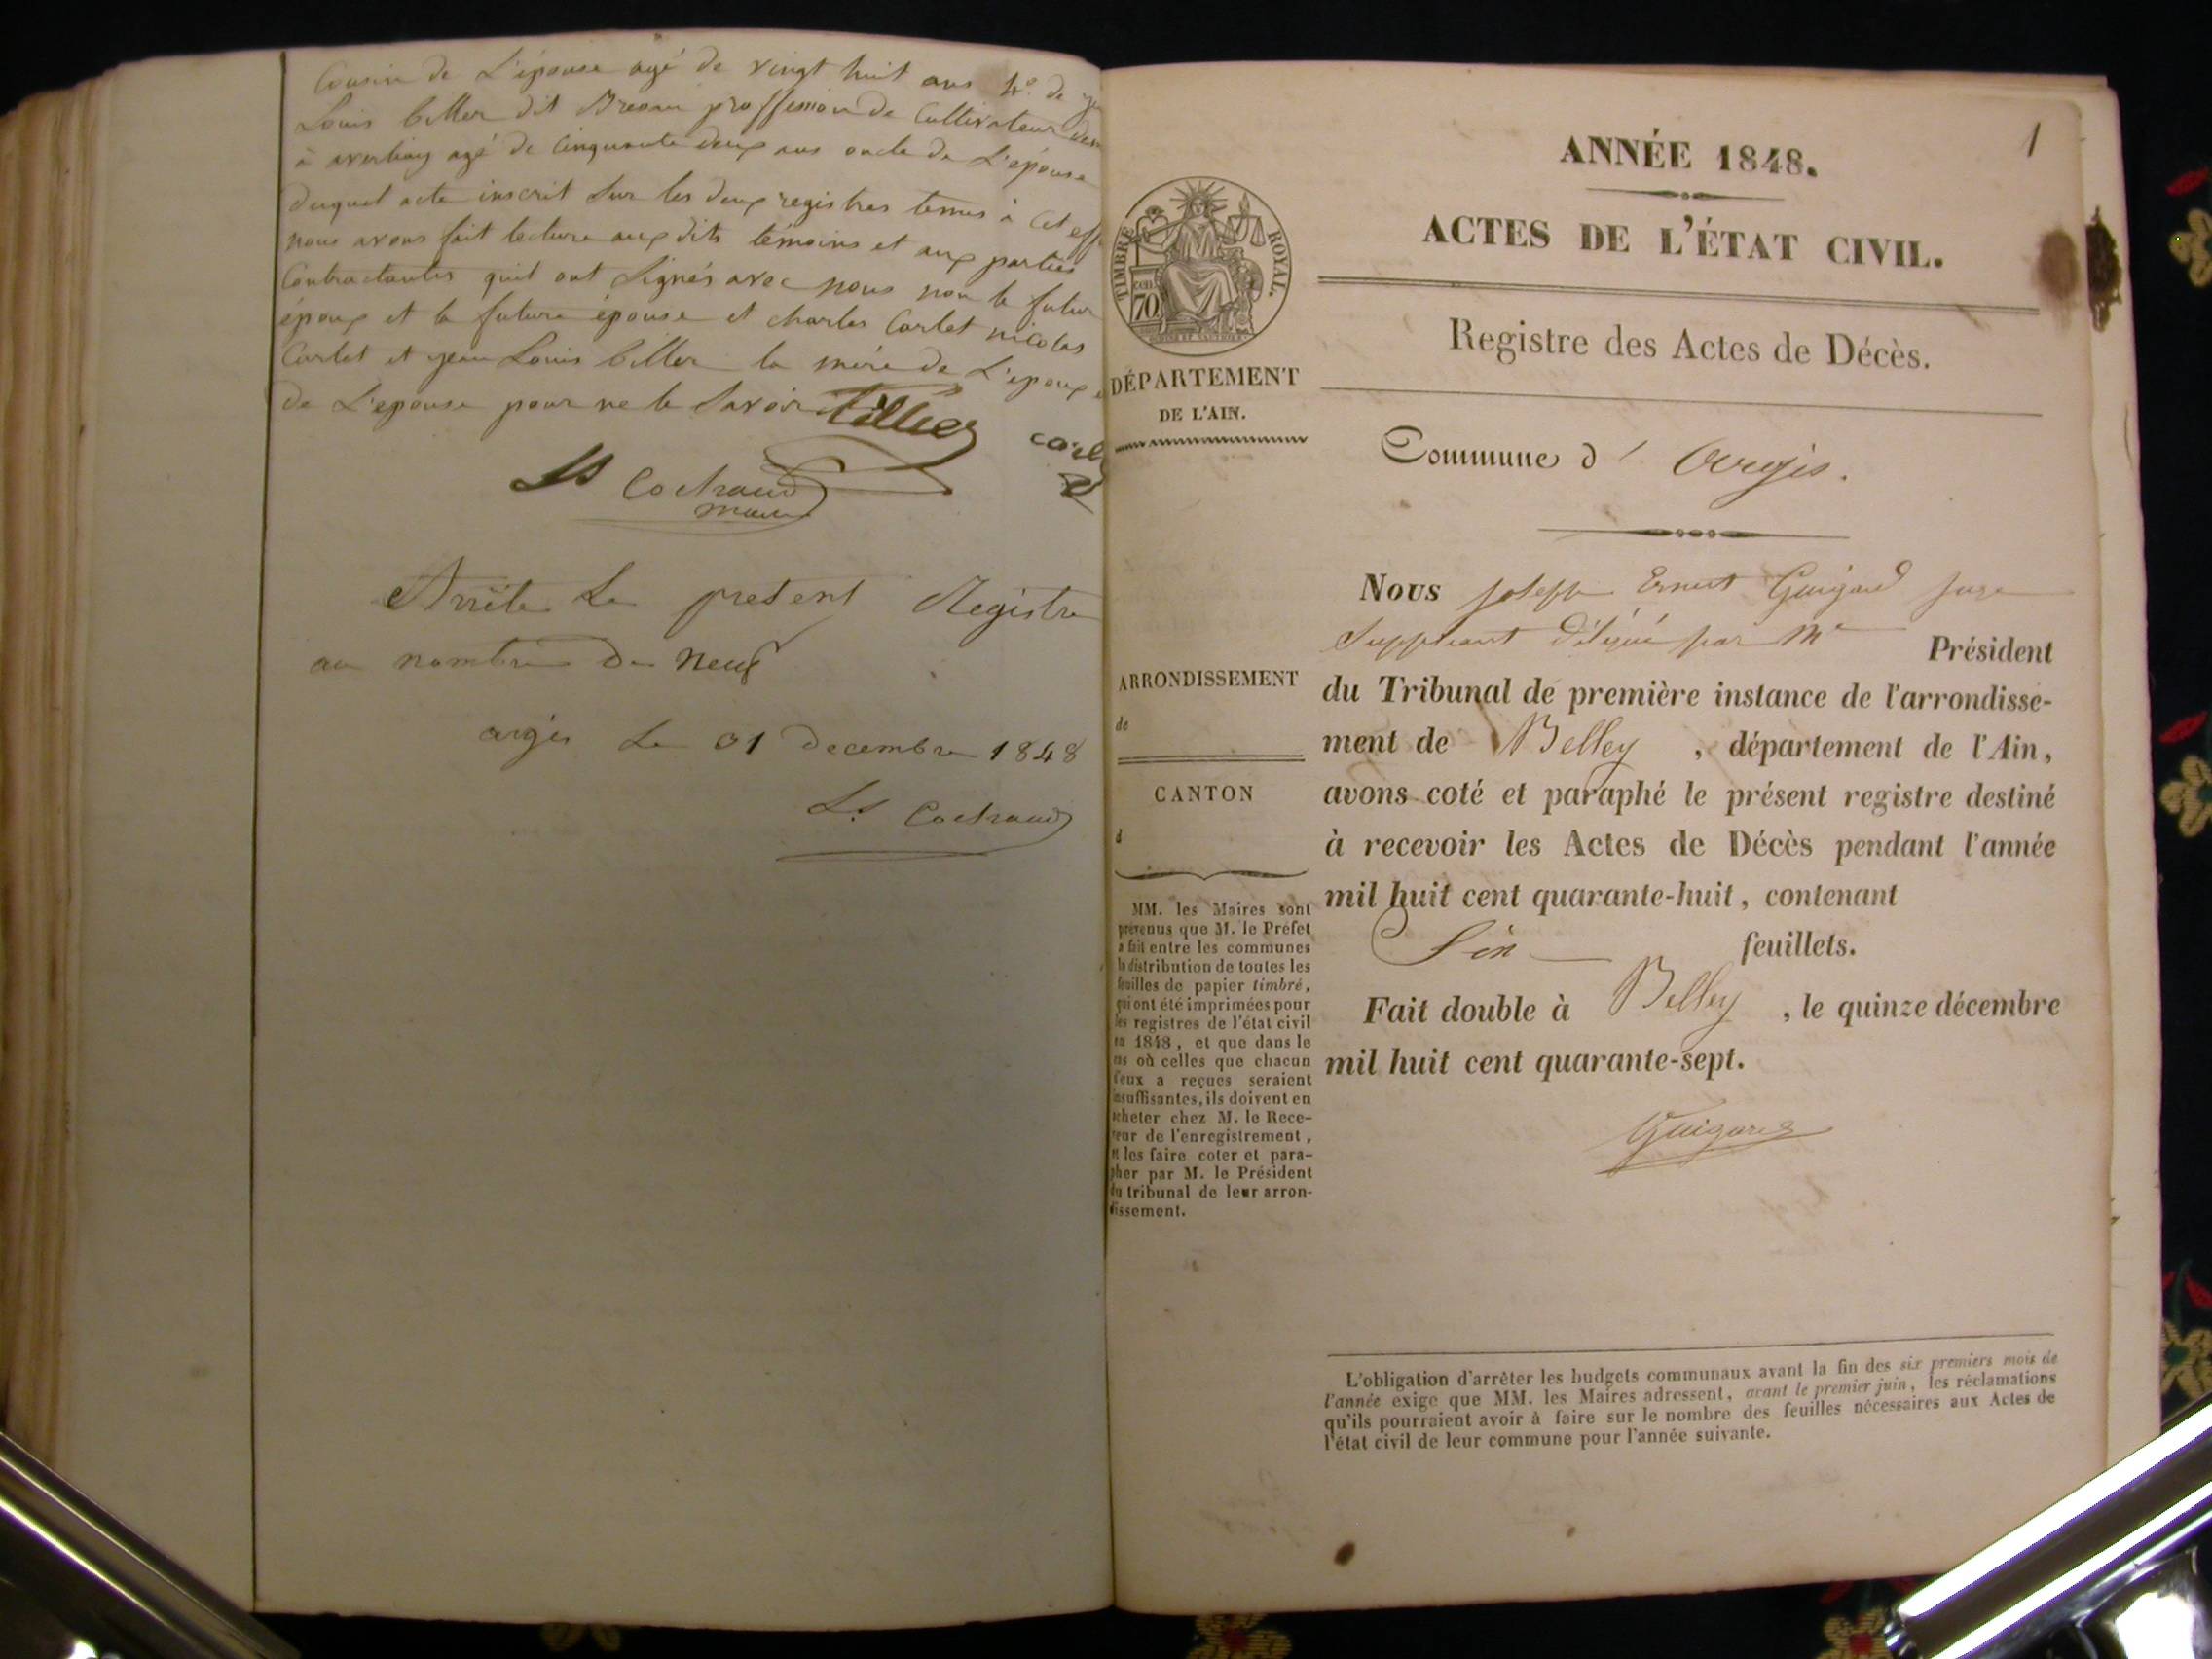 Cousin de L'épouse agé de vingt huit ans 4º de
Louis biller dit proffession de Cultivateur
à agé de Cinquante deux ans oncle de L'épouse
duquel acte inscrit sur les deux registres tenus à Cet
nous avons fait lecture aux dits témoins et aux parties
Contractantes quit ont Signés avec nous non le futur
époux et la future épouse et charles Carlet nicolas
Carlet et jean Louis biller la mère de L'epoux
de L'epouse pour ne le Savoir
Ls Cochraud
maire
Arrêté Le present Registre
au nombre de neuf
argis Le 31 decembre 1848
Ls Cochraud
1
ANNÉE 1848.
ACTES DE L'ÉTAT CIVIL.
Registre des Actes de Décès.
TIMBRE ROYAL.
cen. 70
DÉPARTEMENT
DE L'AIN.
Commune d' Argis.
Nous Joseph Ernest Guigard Juge
Suppléant délégué par Mr Président
du Tribunal de première instance de l'arrondisse-
ment de Belley , département de l'Ain,
avons coté et paraphé le présent registre destiné
à recevoir les Actes de Décès pendant l'année
mil huit cent quarante-huit, contenant
Six feuillets.
Fait double à Belley , le quinze décembre
mil huit cent quarante-sept.
Guigard
ARRONDISSEMENT
de
CANTON
d
MM. les Maires sont
prévenus que M. le Préfet
a fait entre les communes
la distribution de toutes les
feuilles de papier timbré,
qui ont été imprimées pour
les registres de l'état civil
en 1848, et que dans le
cas où celles que chacun
d'eux a reçues seraient
insuffisantes, ils doivent en
acheter chez M. le Rece-
veur de l'enregistrement,
et les faire coter et para-
pher par M. le Président
du tribunal de leur arron-
dissement.
L'obligation d'arrêter les budgets communaux avant la fin des six premiers mois de
l'année exige que MM. les Maires adressent, avant le premier juin, les réclamations
qu'ils pourraient avoir à faire sur le nombre des feuilles nécessaires aux Actes de
l'état civil de leur commune pour l'année suivante.